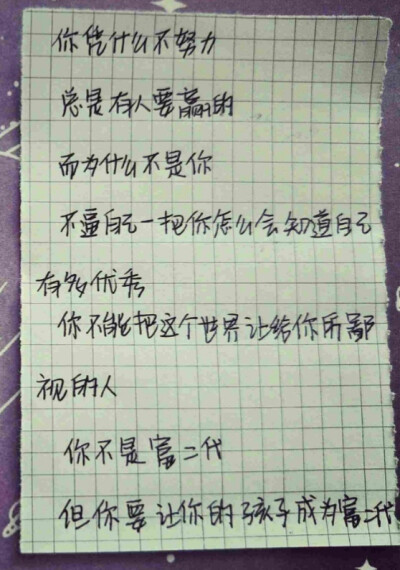 你凭什么不努力
总是有人要赢的
而为什么不是你
不逼自己一把你怎么会知道自己
有多优秀
你不能把这个世界让给你所鄙
视的人
你不是富二代
但你要让你的孩子成为富二代